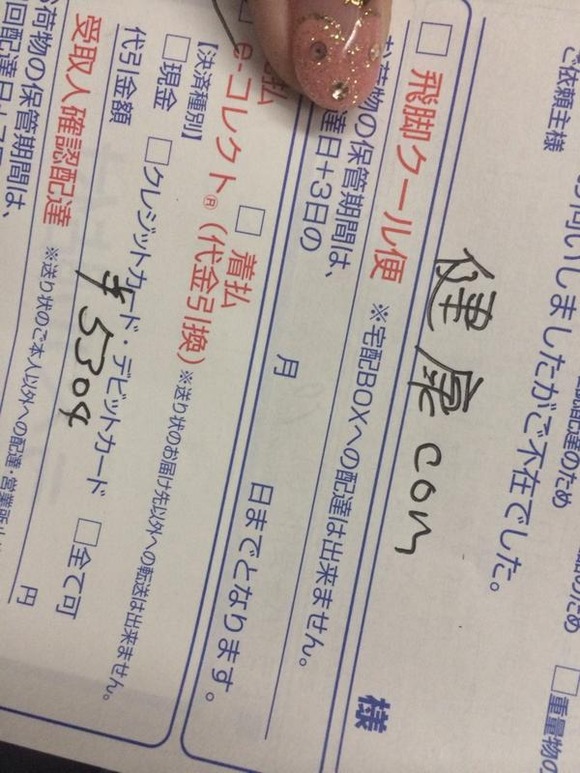 ご依頼主様
健康com
様
お伺いしましたがご不在でした。
飛脚クール便 ※宅配BOXへの配達は出来ません。
お荷物の保管期間は、
達日+3日の 月 日までとなります。
着払
e-コレクト®(代金引換) ※送り状のお届け先以外への転送は出来ません。
【決済種別】
□現金 □クレジットカード・デビットカード □全て可
代引金額 ¥5304 円
受取人確認配達 ※送り状のご本人以外への配達・営業所
荷物の保管期間は、